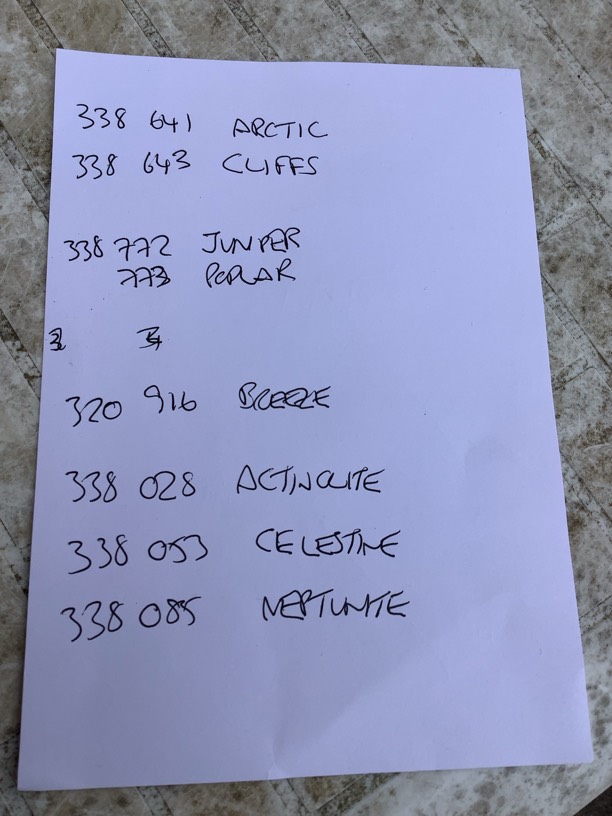 338 641 ARCTIC
338 643 CLIFFS
338 772 JUNIPER
773 POPLAR
320 916 BREEZE
338 028 ACTINOLITE
338 053 CELESTINE
338 085 NEPTUNITE